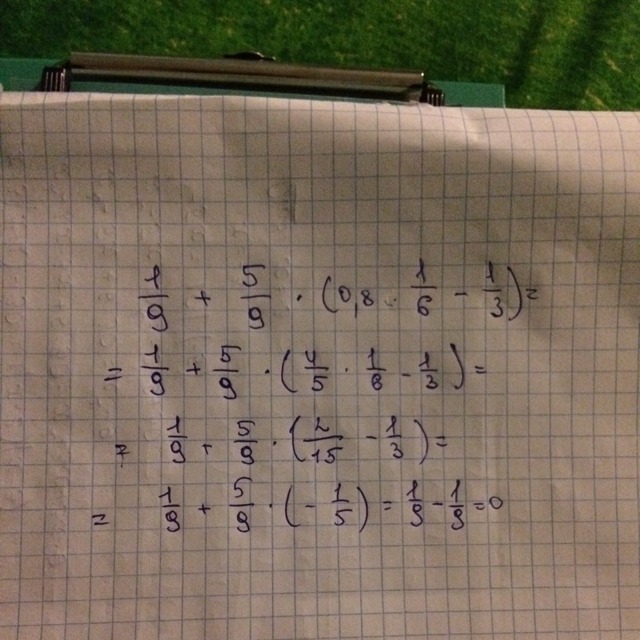 1/9 + 5/9 · (0,8 · 1/6 - 1/3) =
= 1/9 + 5/9 · (4/5 · 1/6 - 1/3) =
= 1/9 + 5/9 · (2/15 - 1/3) =
= 1/9 + 5/9 · (- 1/5) = 1/9 - 1/9 = 0